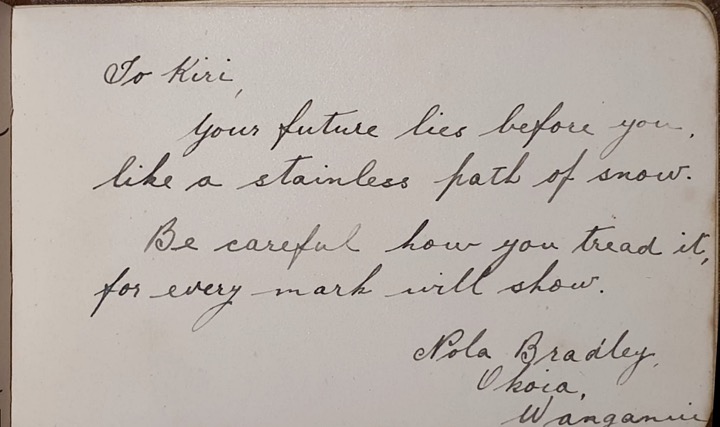 To Kiri,
Your future lies before you,
like a stainless path of snow.
Be careful how you tread it,
for every mark will show.
Nola Bradley,
Okoia,
Wanganui